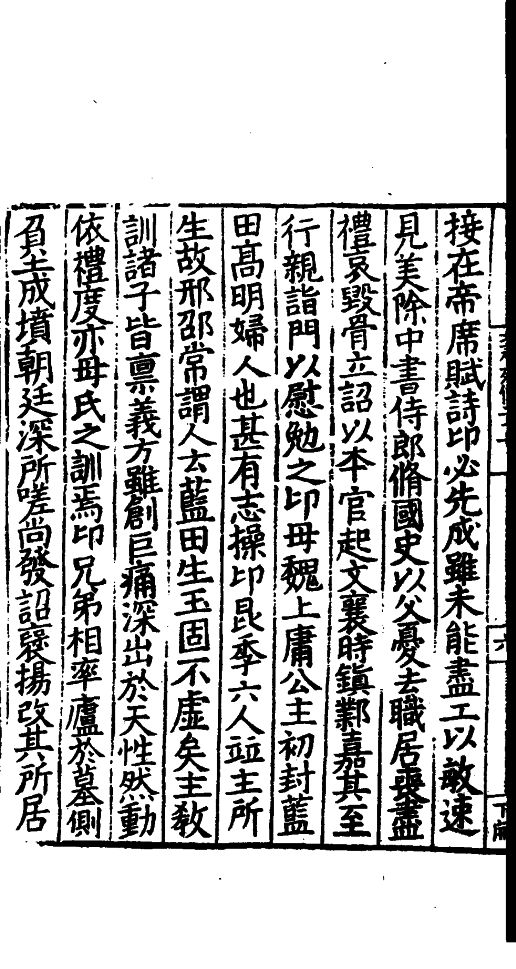 接在帝席賦詩卬必先成雖未能盡工以敏速
見美除中書侍郎脩國史以父憂去職居喪盡
禮哀毀骨立詔以本官起文襄時鎮鄴嘉其至
行親詣門以慰勉之卬母魏上庸公主初封藍
田高明婦人也甚有志操卬昆季六人並主所
生故邢邵常謂人云藍田生玉固不虛矣主教
訓諸子皆稟義方雖創巨痛深出於天性然動
依禮度亦母氏之訓焉卬兄弟相率廬於墓側
負土成墳朝廷深所嗟尚發詔襃揚改其所居